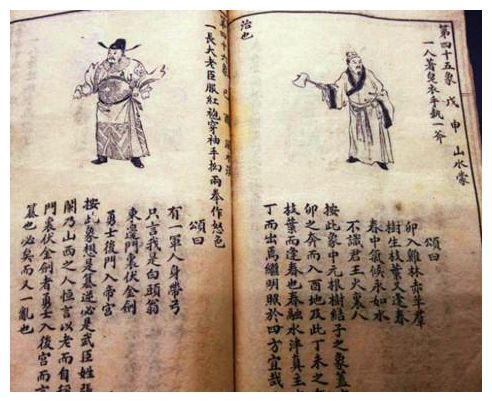 第四十五象 戊申 山水蒙
一人著皂衣手執一斧
頌曰
卯入雞林赤牛羣
樹生枝葉又逢春
春中氣候永如水
不識君王火裏人
按此象中元根樹結子之象蓋
卯之奔而入酉地及此丁未之
枝葉而逢春也春融水泮真主
丁而出焉繼明照於四方宜哉
治也
一長大老臣服紅袍穿袖手拗兩拳作怒色
頌曰
有一軍人身帶弓
只言我是白頭翁
東邊門裏伏金劍
勇士後門入帝宮
按此象想是篡逆必是武臣姓張
閣乃山西之人恒言以老而自
門裏伏金劍者勇士入後宮而
篡也必矣而又一亂也